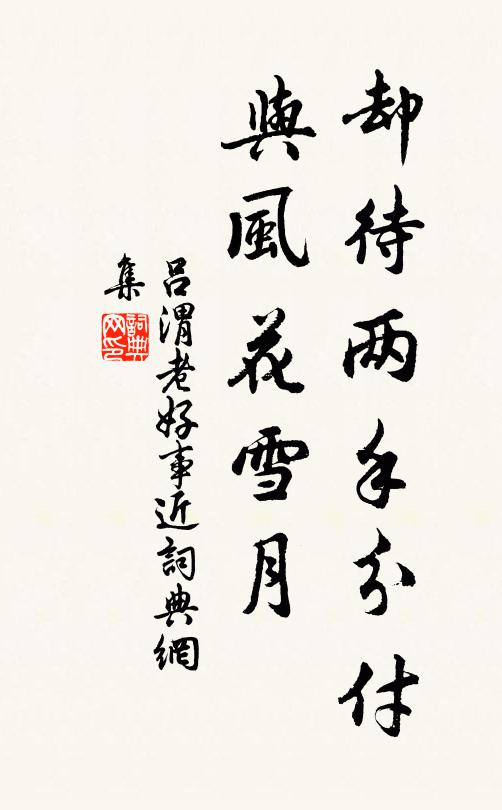 却待两手分付
與風花雪月
吕渭老好事近詞典網
集
詞典
网印